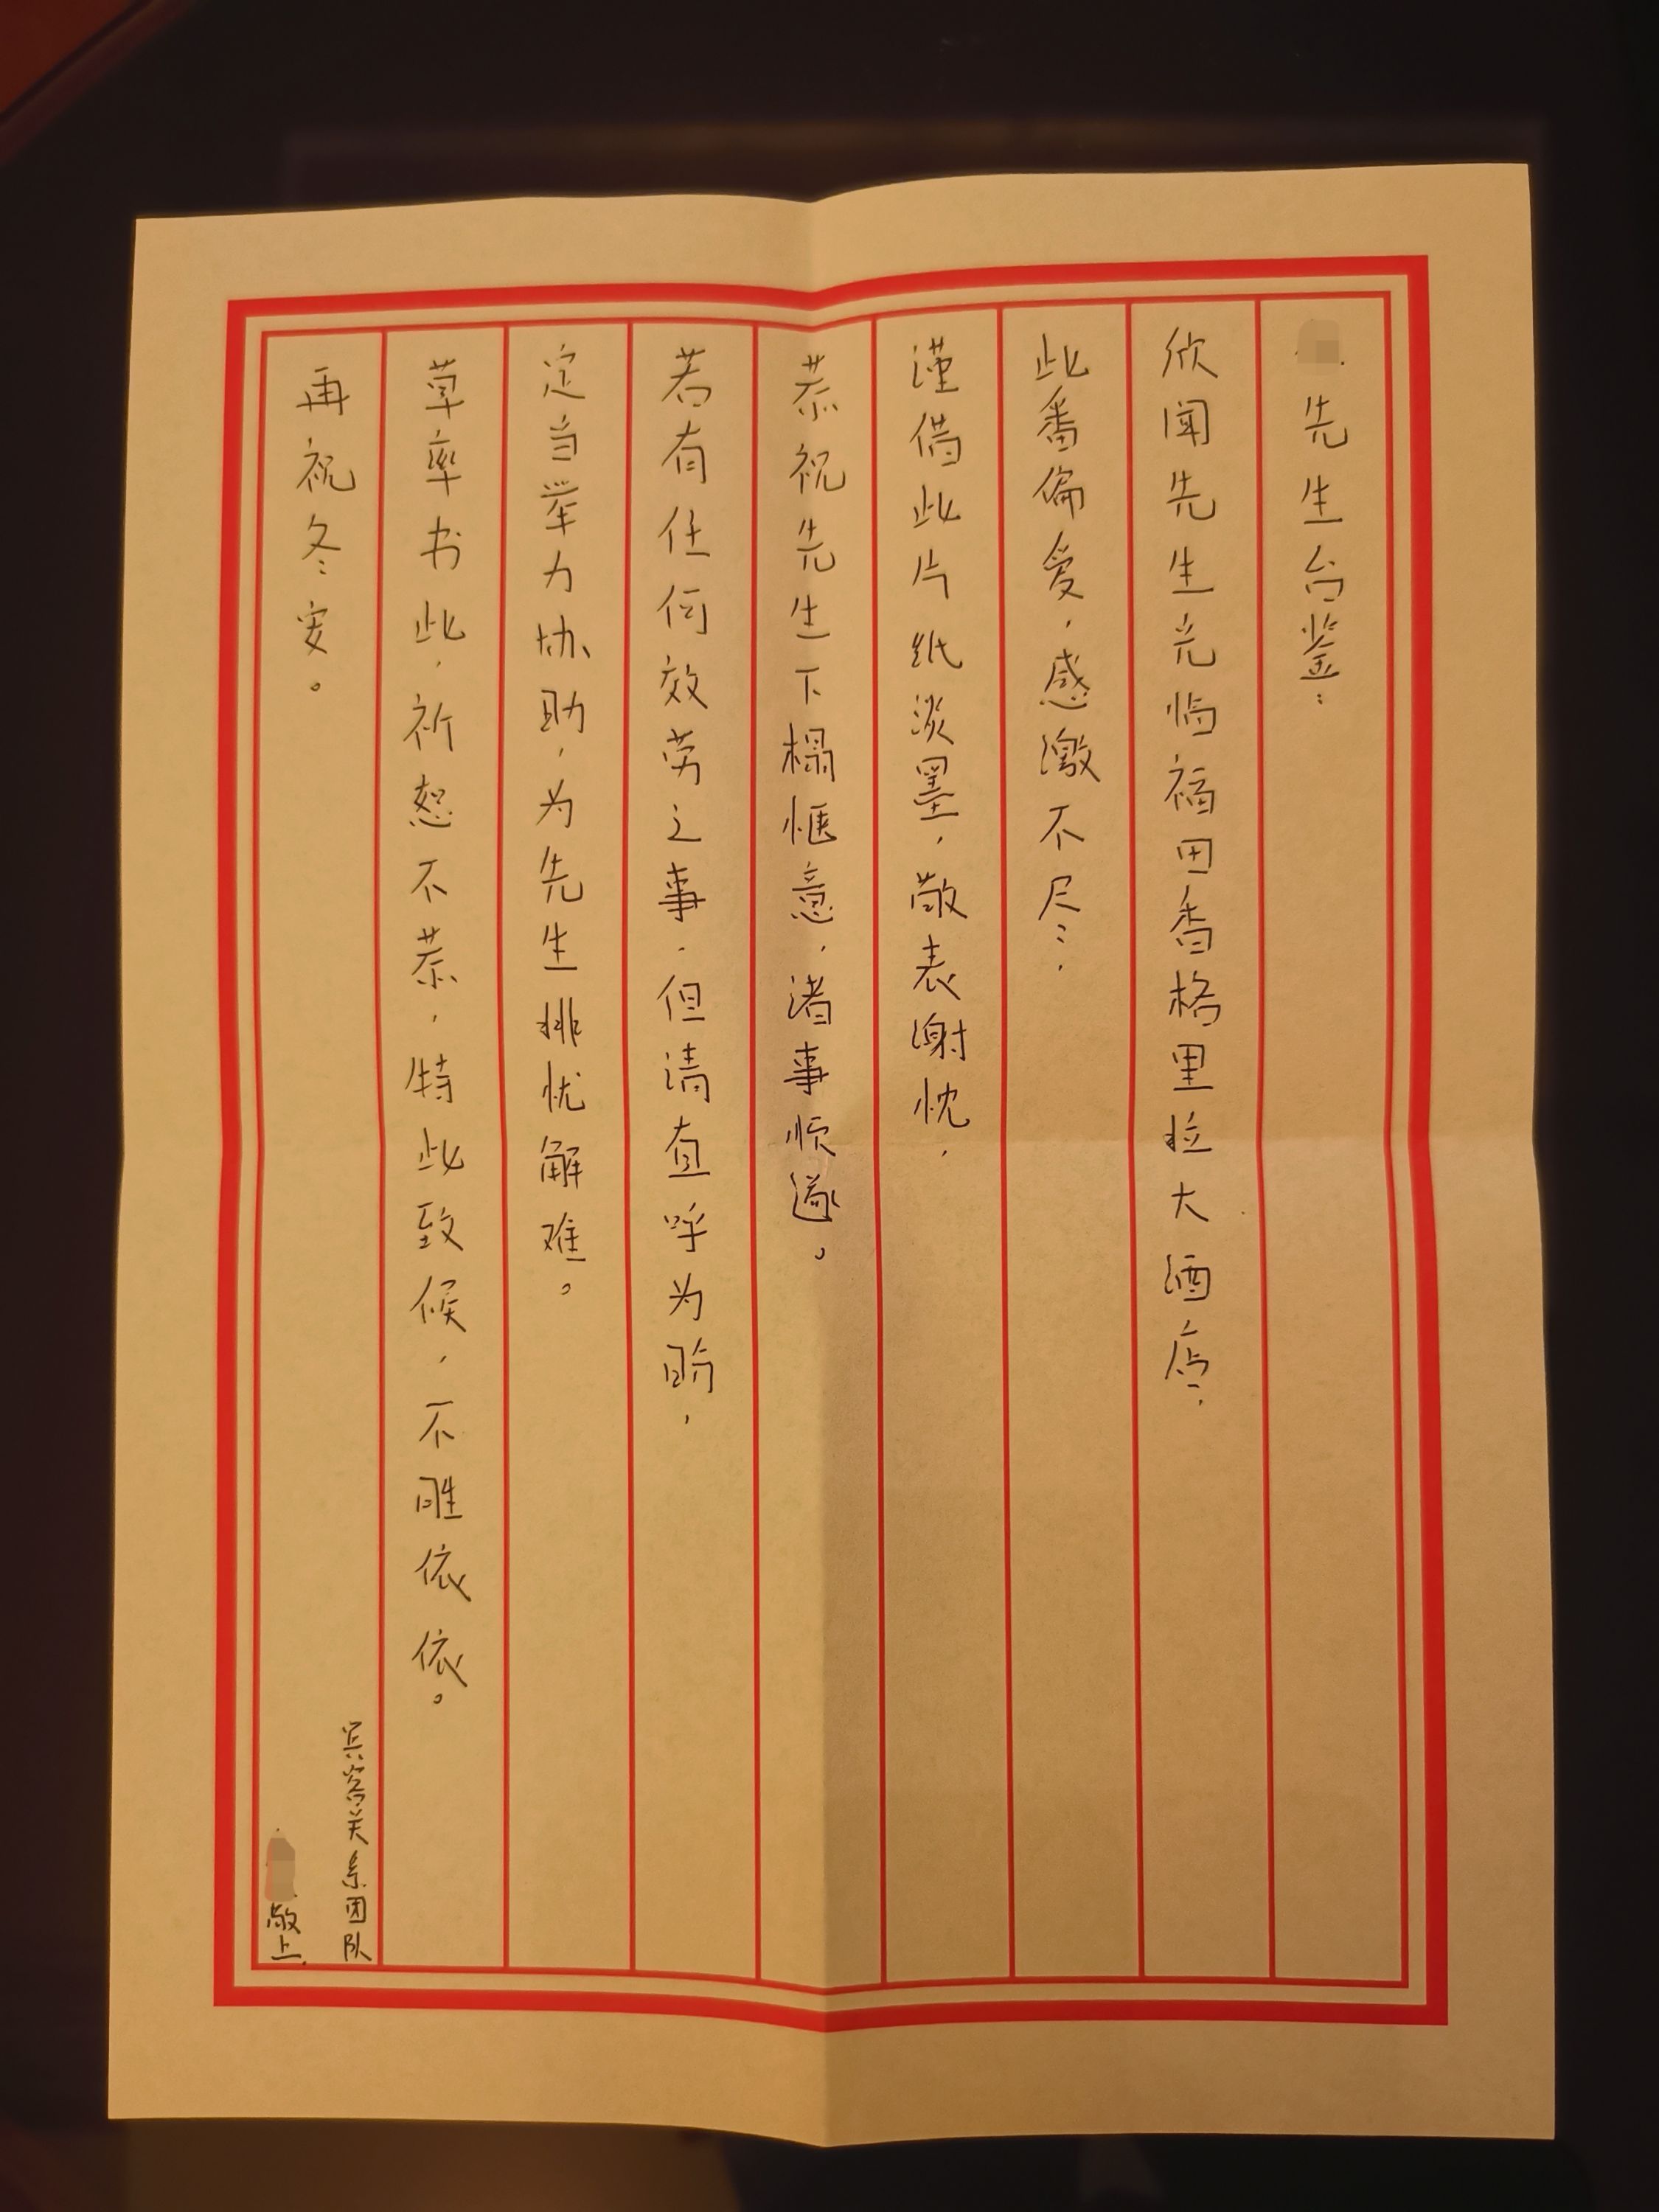 先生台鉴：
欣闻先生光临福田香格里拉大酒店，
此番偏爱，感激不尽；，
谨借此片纸淡墨，敬表谢忱，
恭祝先生下榻惬意，诸事顺遂。
若有任何效劳之事，但请直呼为盼，
定当举力协助，为先生排忧解难。
草率书此，祈恕不恭，特此致候，不胜依依。
再祝冬安。
宾客关系团队
敬上